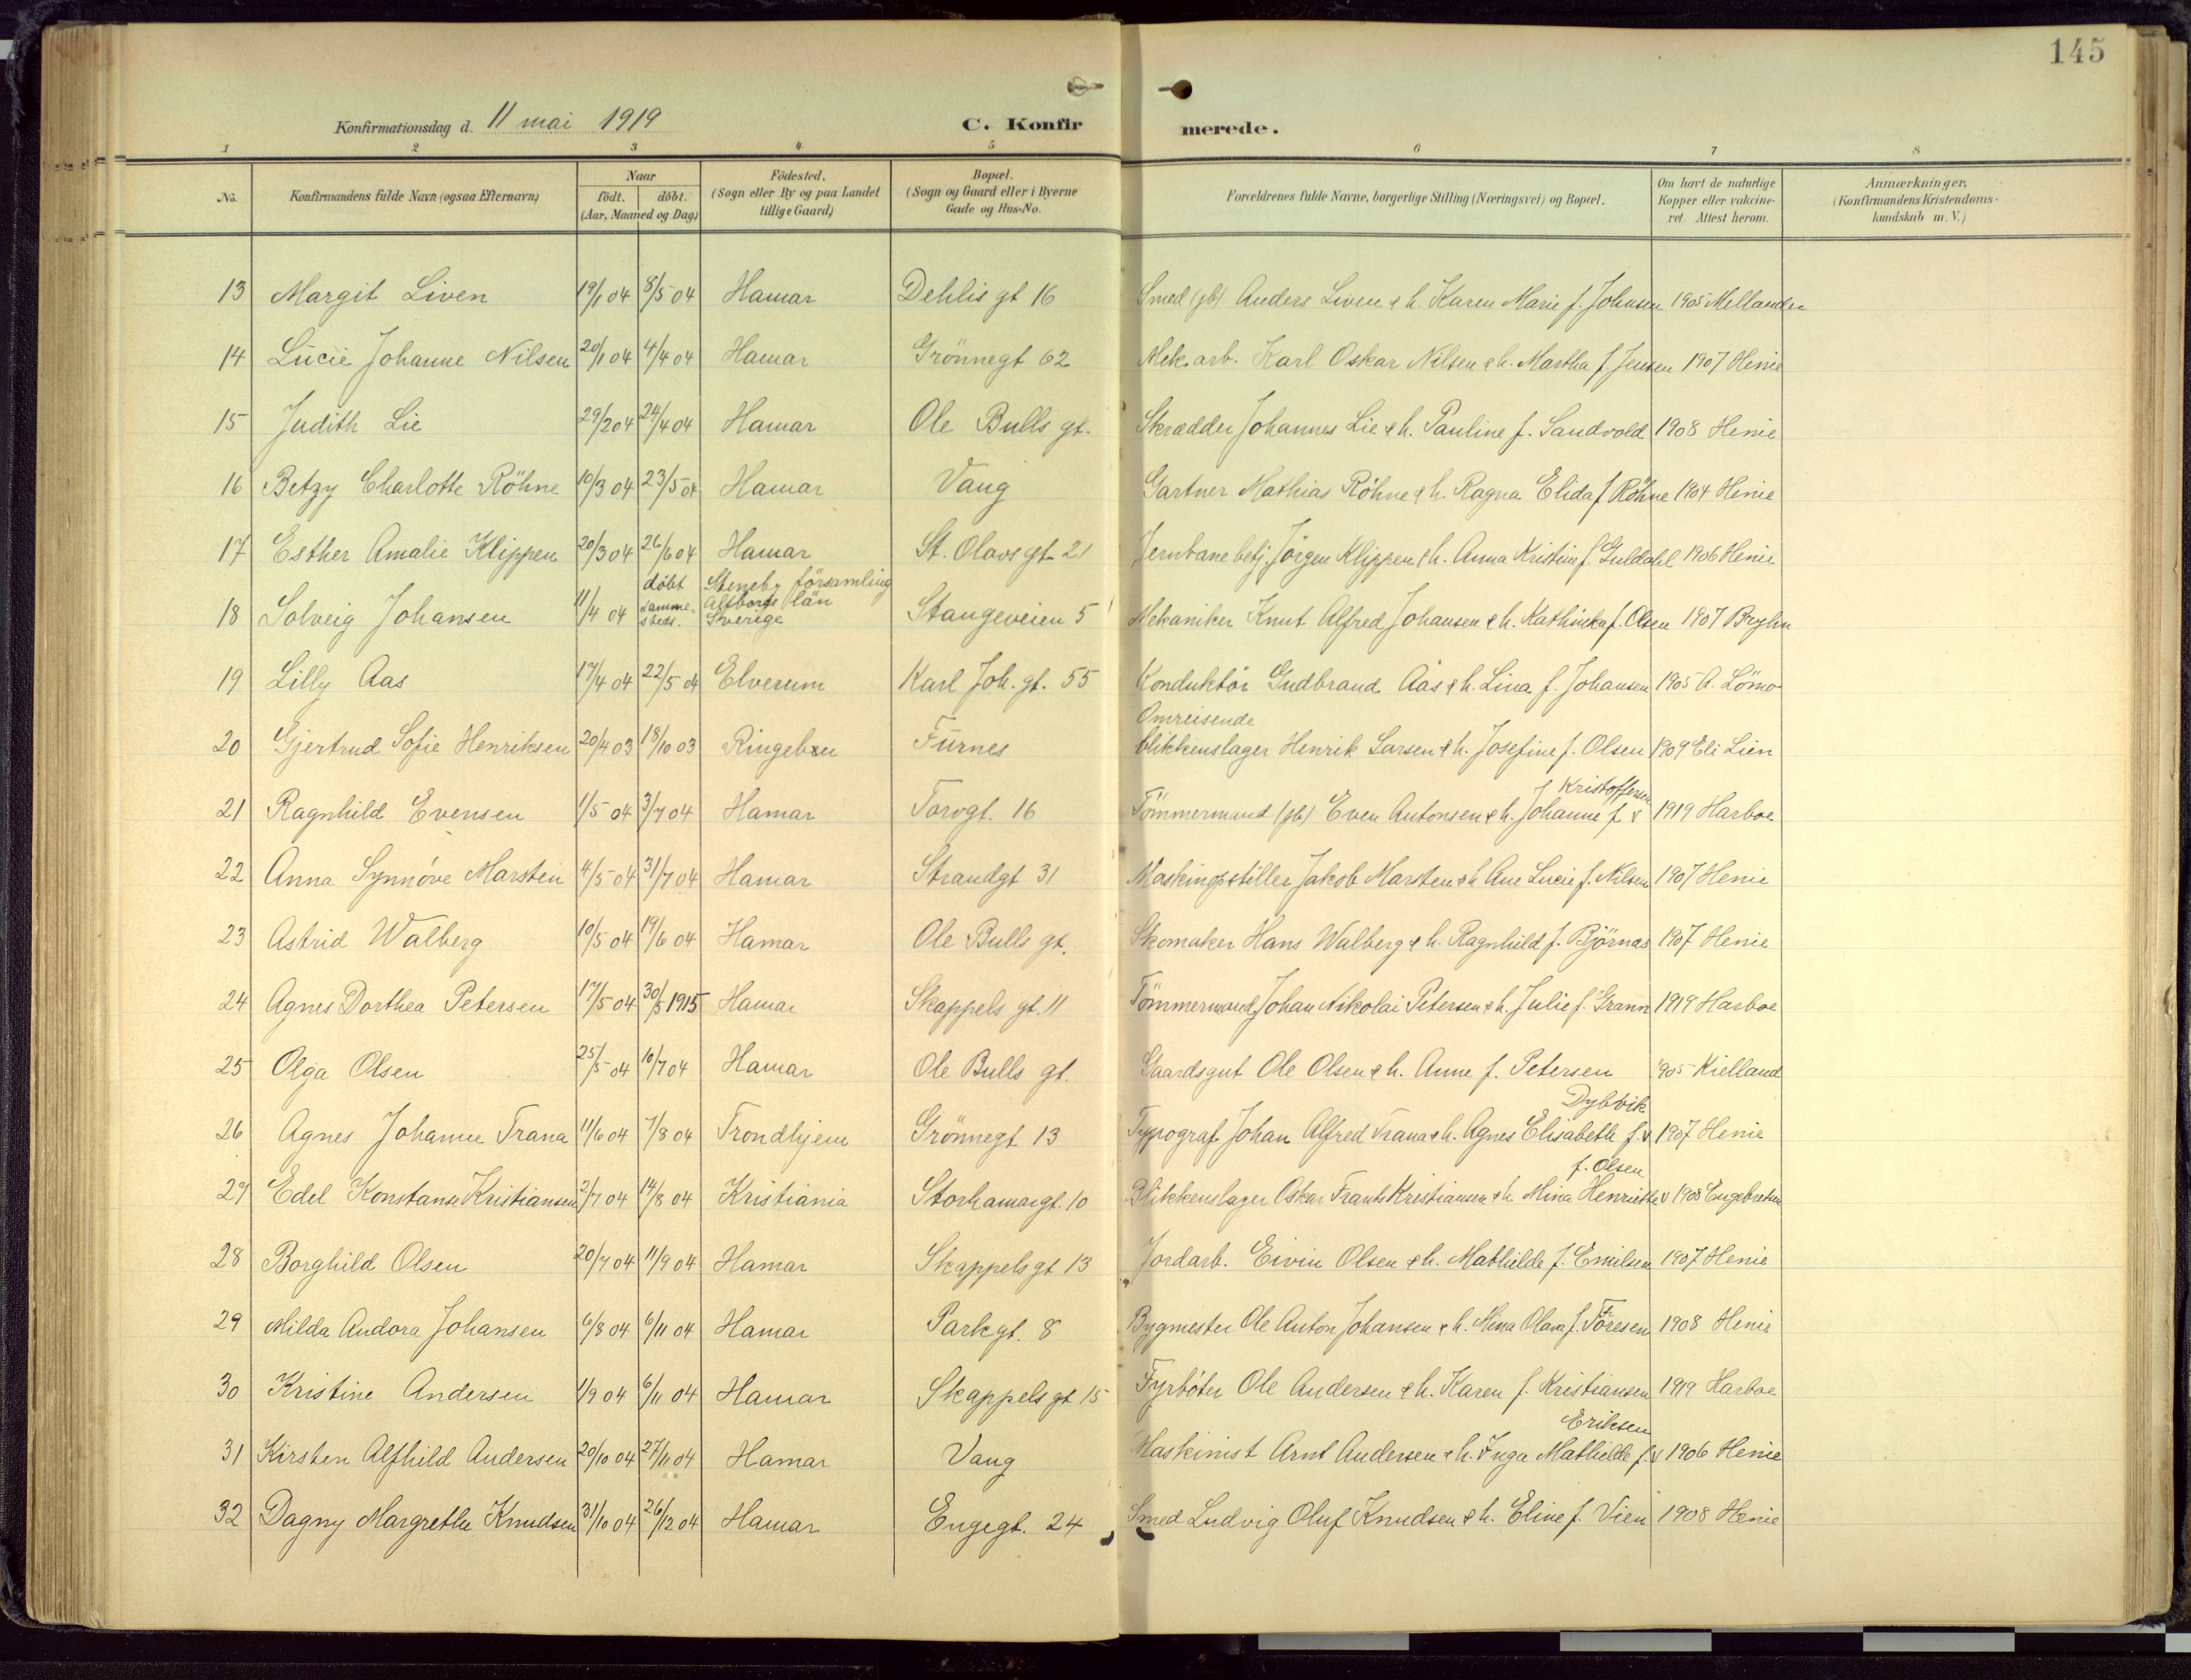 145
Konfirmationsdag d. 11 mai 1919 C. Konfirmerede.
1 2 3 4 5 6 7 8
No. Konfirmandens fulde Navn (ogsaa Efternavn) Naar födt. döbt. (Aar, Maaned og Dag) Födested. (Sogn eller By og paa Landet tillige Gaard) Bopæl. (Sogn og Gaard eller i Byerne Gade og Hus-No. Forældrenes fulde Navne, borgerlige Stilling (Næringsvei) og Bopæl. Om havt de naturlige Kopper eller vakcineret. Attest herom. Anmærkninger, (Konfirmandens Kristendomskundskab m. V.)
13 Margit Liven 19/1 04 8/5 04 Hamar Dehlis gt 16 Smed (gb) Anders Liven & h. Karen Marie f. Johnsen 1905 Mellander
14 Lucie Johanne Nilsen 20/1 04 4/4 04 Hamar Grönnegt 62 Mek. arb. Karl Oskar Nilsen & h. Martha f Jensen 1907 Henie
15 Judith Lie 29/2 04 24/4 04 Hamar Ole Bulls gt. Skrædder Johannes Lie & h. Pauline f. Sandvold 1908 Henie
16 Betzy Charlotte Röhne 10/3 04 23/5 04 Hamar Vang Gartner Mathias Röhne & h. Ragna Elida f Röhne 1904 Henie
17 Esther Amalie Klippen 20/3 04 26/6 04 Hamar St. Olavs gt 21 Jernbanebetj. Jörgen Klippen & h. Anna Kristine f. Guldahl 1906 Henie
18 Solveig Johansen 11/4 04 döbt sammesteds. Steneby församling Älfborgs län Sverige Stangeveien 5 Mekaniker Knut Alfred Johansen & h. Kathinka f. Olsen 1907 Bryhn
19 Lilly Aas 17/4 04 22/5 04 Elverum Karl Joh. gt. 55 Konduktör Gudbrand Aas & h. Lina f. Johansen 1905 A. Lömo
20 Gjertrud Sofie Henriksen 20/4 03 18/10 03 Ringebu Furnes Omreisende blikkenslager Henrik Larsen & h. Josefine f. Olsen 1909 Eli Lien
21 Ragnhild Evensen 1/5 04 3/7 04 Hamar Torvgt. 16 Tömmermand (gb) Even Antonsen & h. Johanne f. v f Kristoffersen 1919 Harboe
22 Anna Synnöve Marsten 4/5 04 31/7 04 Hamar Strandgt 31 Maskinopstiller Jakob Marsten & h Ane Lucie f. Nilsen 1907 Henie
23 Astrid Walberg 10/5 04 19/6 04 Hamar Ole Bulls gt. Skomaker Hans Walberg & h. Ragnhild f. Björnas 1907 Henie
24 Agnes Dorthea Petersen 17/5 04 30/5 1915 Hamar Skappels gt. 11 Tömmermand Johan Nikolai Petersen & h. Julie f. Grann 1919 Harboe
25 Olga Olsen 25/5 04 10/7 04 Hamar Ole Bulls gt. Gaardsgut Ole Olsen & h. Anne f. Petersen 1905 Kielland
26 Agnes Johanne Trana 11/6 04 7/8 04 Trondhjem Grönnegt 13 Typograf Johan Alfred Trana & h. Agnes Elisabeth f. v Dybvik 1907 Henie
27 Edel Konstanse Kristiansen 2/7 04 14/8 04 Kristiania Storhamargt. 10 Blikkenslager Oskar Frants Kristiansen & h. Mina Henriette v f. Olsen 1908 Engebretsen
28 Borghild Olsen 20/7 04 11/9 04 Hamar Skappels gt 13 Jordarb. Eivin Olsen & h. Mathilde f. Emilsen 1907 Henie
29 Milda Andora Johansen 6/8 04 6/11 04 Hamar Park gt. 8 Bygmester Ole Anton Johansen & h. Mina Olava f. Töresen 1908 Henie
30 Kristine Andersen 1/9 04 6/11 04 Hamar Skappels gt 15 Fyrböter Ole Andersen & h. Karen f. Kristiansen 1919 Harboe
31 Kirsten Alfhild Andersen 20/10 04 27/11 04 Hamar Vang Maskinist Arnt Andersen & h. Inga Mathilde f. v Eriksen 1906 Henie
32 Dagny Margrethe Knudsen 31/10 04 26/12 04 Hamar Engegt. 24 Smed Ludvig Oluf Knudsen & h. Eline f. Vien 1908 Henie